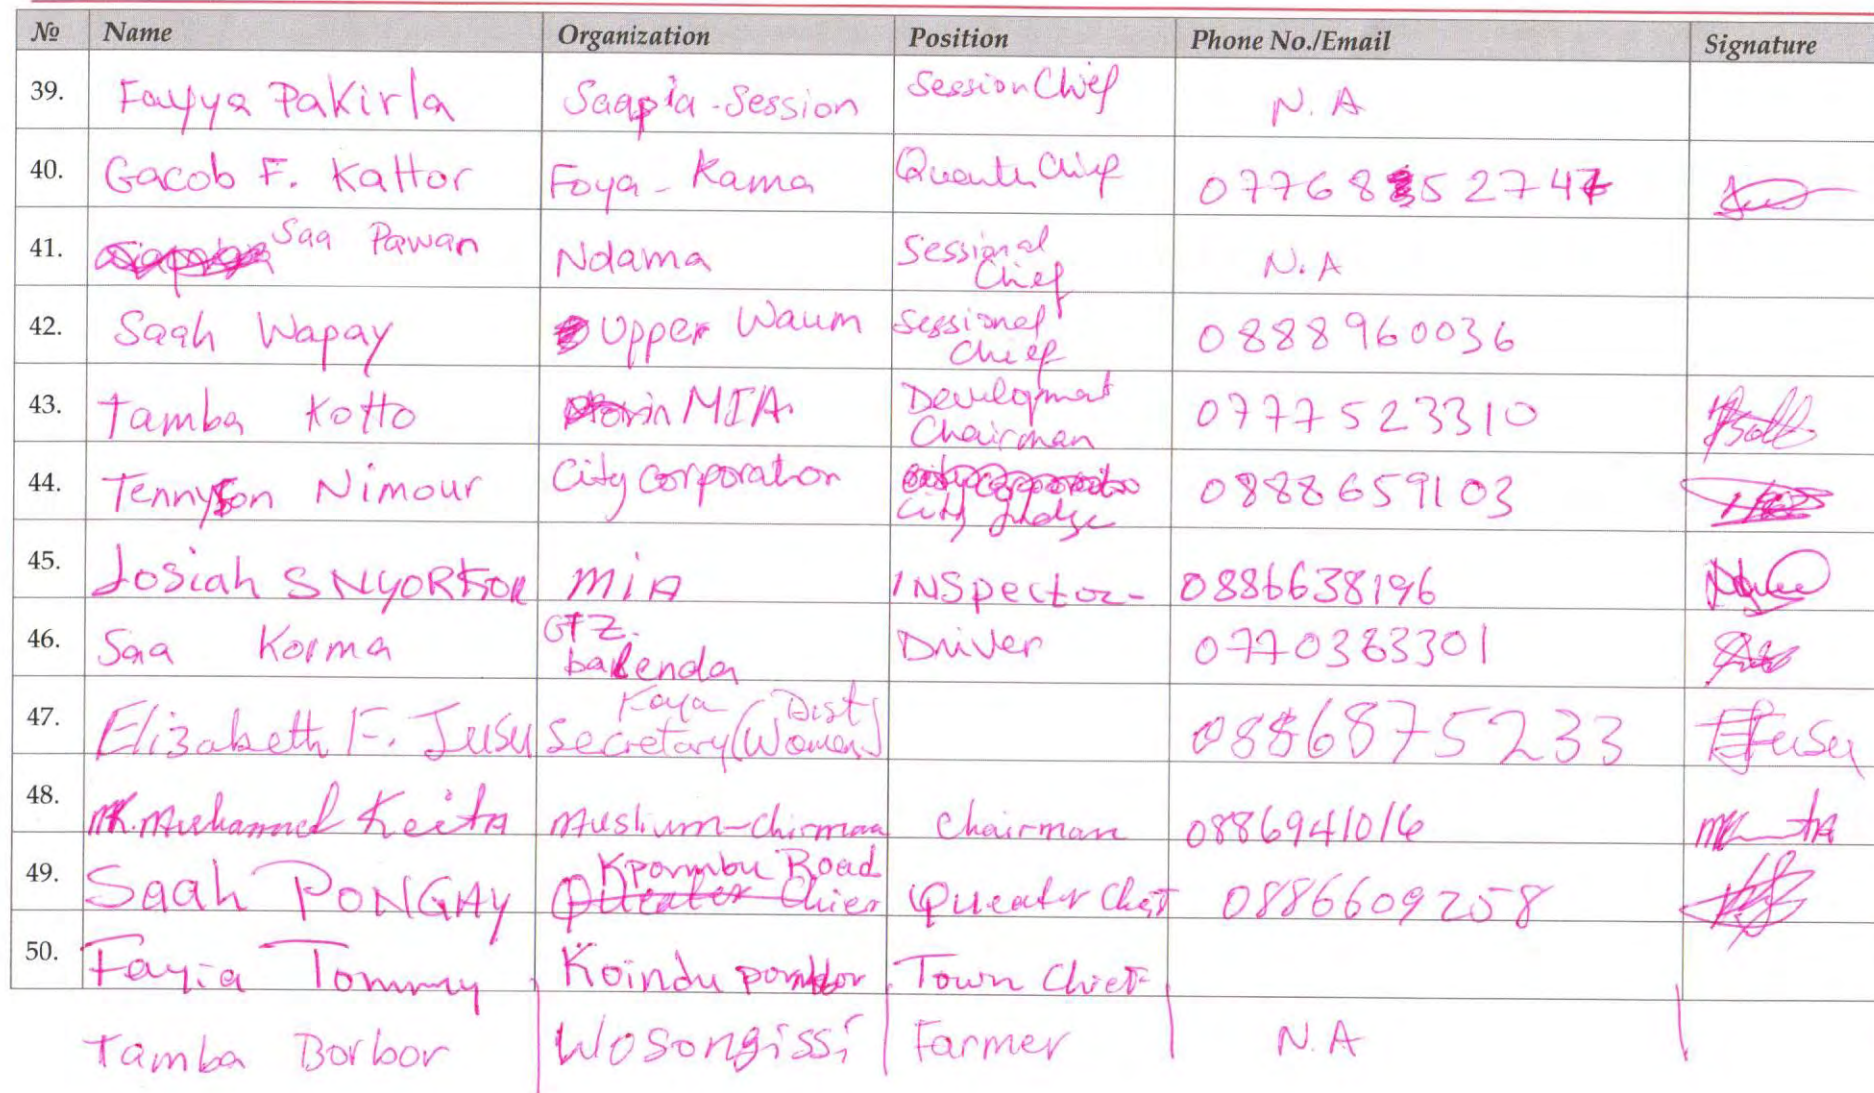 № Name Organization Position Phone No./Email Signature
39. Fayya Pakirla Saapia-Session Session Chief N.A
40. Gacob F. Kattor Foya-Kama
41. Saa Pawan Ndama Sessional Chief N.A
42. Saah Wapay Upper Waum Sessional Chief 0888960036
43. Tamba Kotto MIA. Chairman 0777523310
44. Tennyson Nimour City Corporation City Judge 0888659103
45. Josiah S NYORKOR MIA INSpector- 0886638196
46. Saa Korma Driver
47. Elizabeth F. Jusu Secretary (Women) Foya Dist 0886875233
48. Keita Muslium-chirman Chairman 0886941016
49. Saah PONGAY Kpormbu Road Queater Chief Queater Chief 0886609258
50. Fayia Tommy Koindu Town Chief
Tamba Borbor Wosongissi Farmer N.A